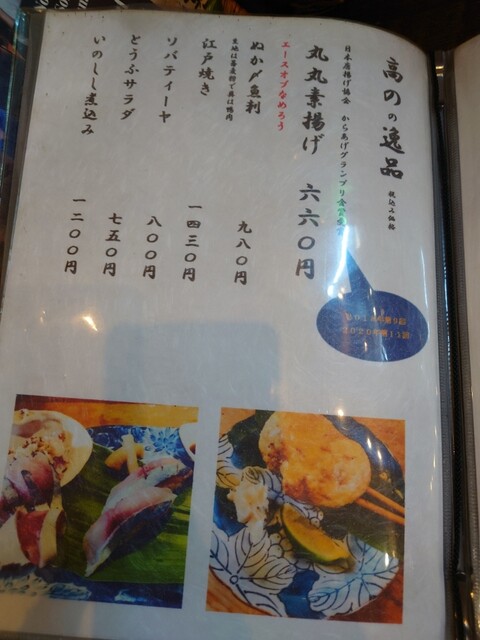 高のの逸品 税込み価格
日本唐揚げ協会 からあげグランプリ金賞受賞
丸丸素揚げ 六六〇円
エースオブなめろう
ぬか〆魚刺 九八〇円
生地は蕎麦粉で具は鴨肉
江戸焼き 一四三〇円
ソバティーヤ 八〇〇円
とうふサラダ 七五〇円
いのしし煮込み 一二〇〇円